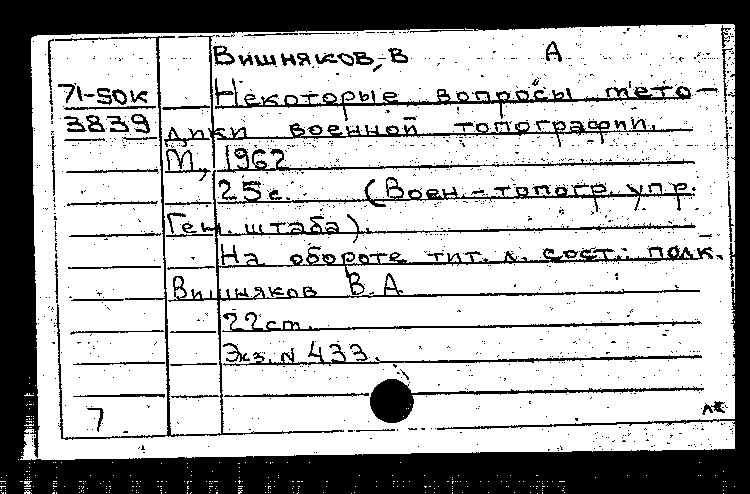 Вишняков, В А
71-50к Некоторые вопросы мето-
3839 дики военной топографии.
М, 1962
25 с. (Воен.-топогр. упр.
Ген. штаба).
На обороте тит. л. сост.: полк.
Вишняков В.А
22 cm.
Экз. N 433.
7